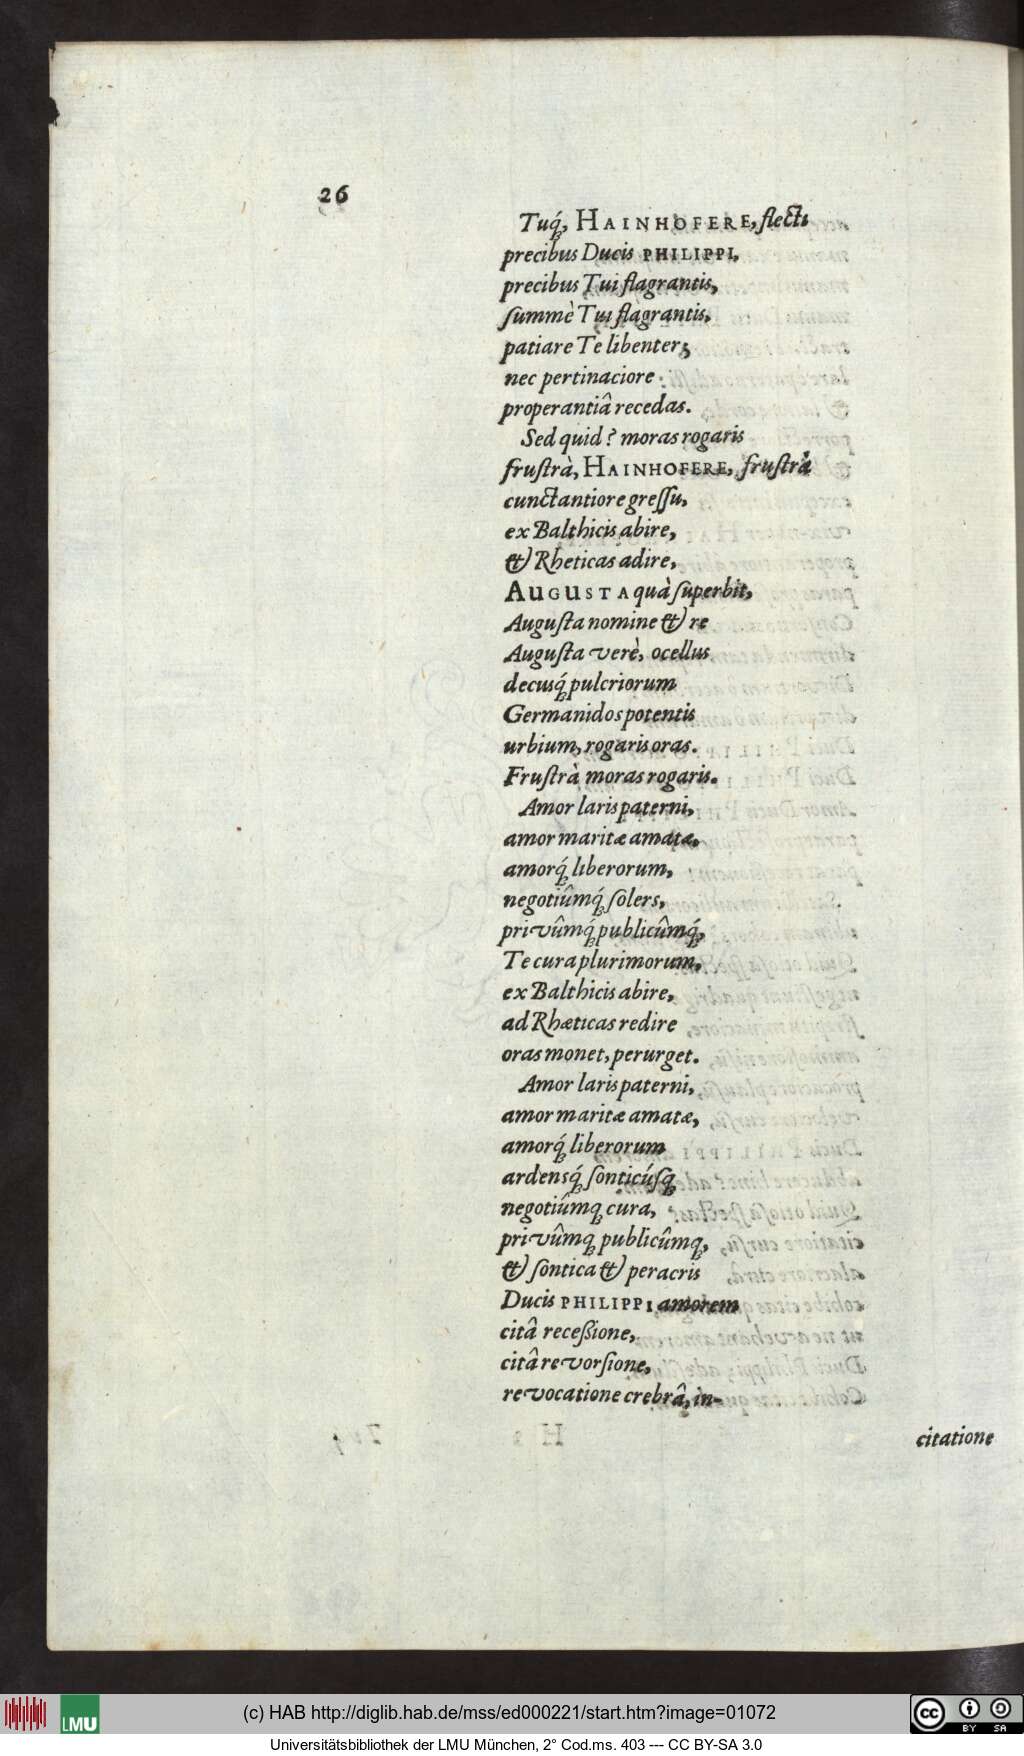 26
Tuq́;, HAINHOFERE, flecti
precibus Ducis PHILIPPI,
precibus Tui flagrantis,
summè Tui flagrantis,
patiare Te libenter;
nec pertinaciore
properantiâ recedas.
Sed quid? moras rogaris
frustrà, HAINHOFERE, frustrà
cunctantiore gressu,
ex Balthicis abire,
& Rheticas adire,
AUGUSTA quà superbit,
Augusta nomine & re
Augusta verè, ocellus
decusq́; pulcriorum
Germanidos potentis
urbium, rogaris oras.
Frustrà moras rogaris.
Amor laris paterni,
amor maritæ amatæ,
amorq́; liberorum,
negotiûmq́; solers,
privûmq́; publicûmq́;,
Te cura plurimorum,
ex Balthicis abire,
ad Rhæticas redire
oras monet, perurget.
Amor laris paterni,
amor maritæ amatæ,
amorq́; liberorum
ardensq́; sonticúsq;
negotiûmq; cura,
privûmq; publicûmq;,
& sontica & peracris
Ducis PHILIPPI amorem
citâ recessione,
citâ revorsione,
revocatione crebrâ, in-
citatione
(c) HAB http://diglib.hab.de/mss/ed000221/start.htm?image=01072
Universitätsbibliothek der LMU München, 2° Cod.ms. 403 --- CC BY-SA 3.0
LMU
cc
BY SA